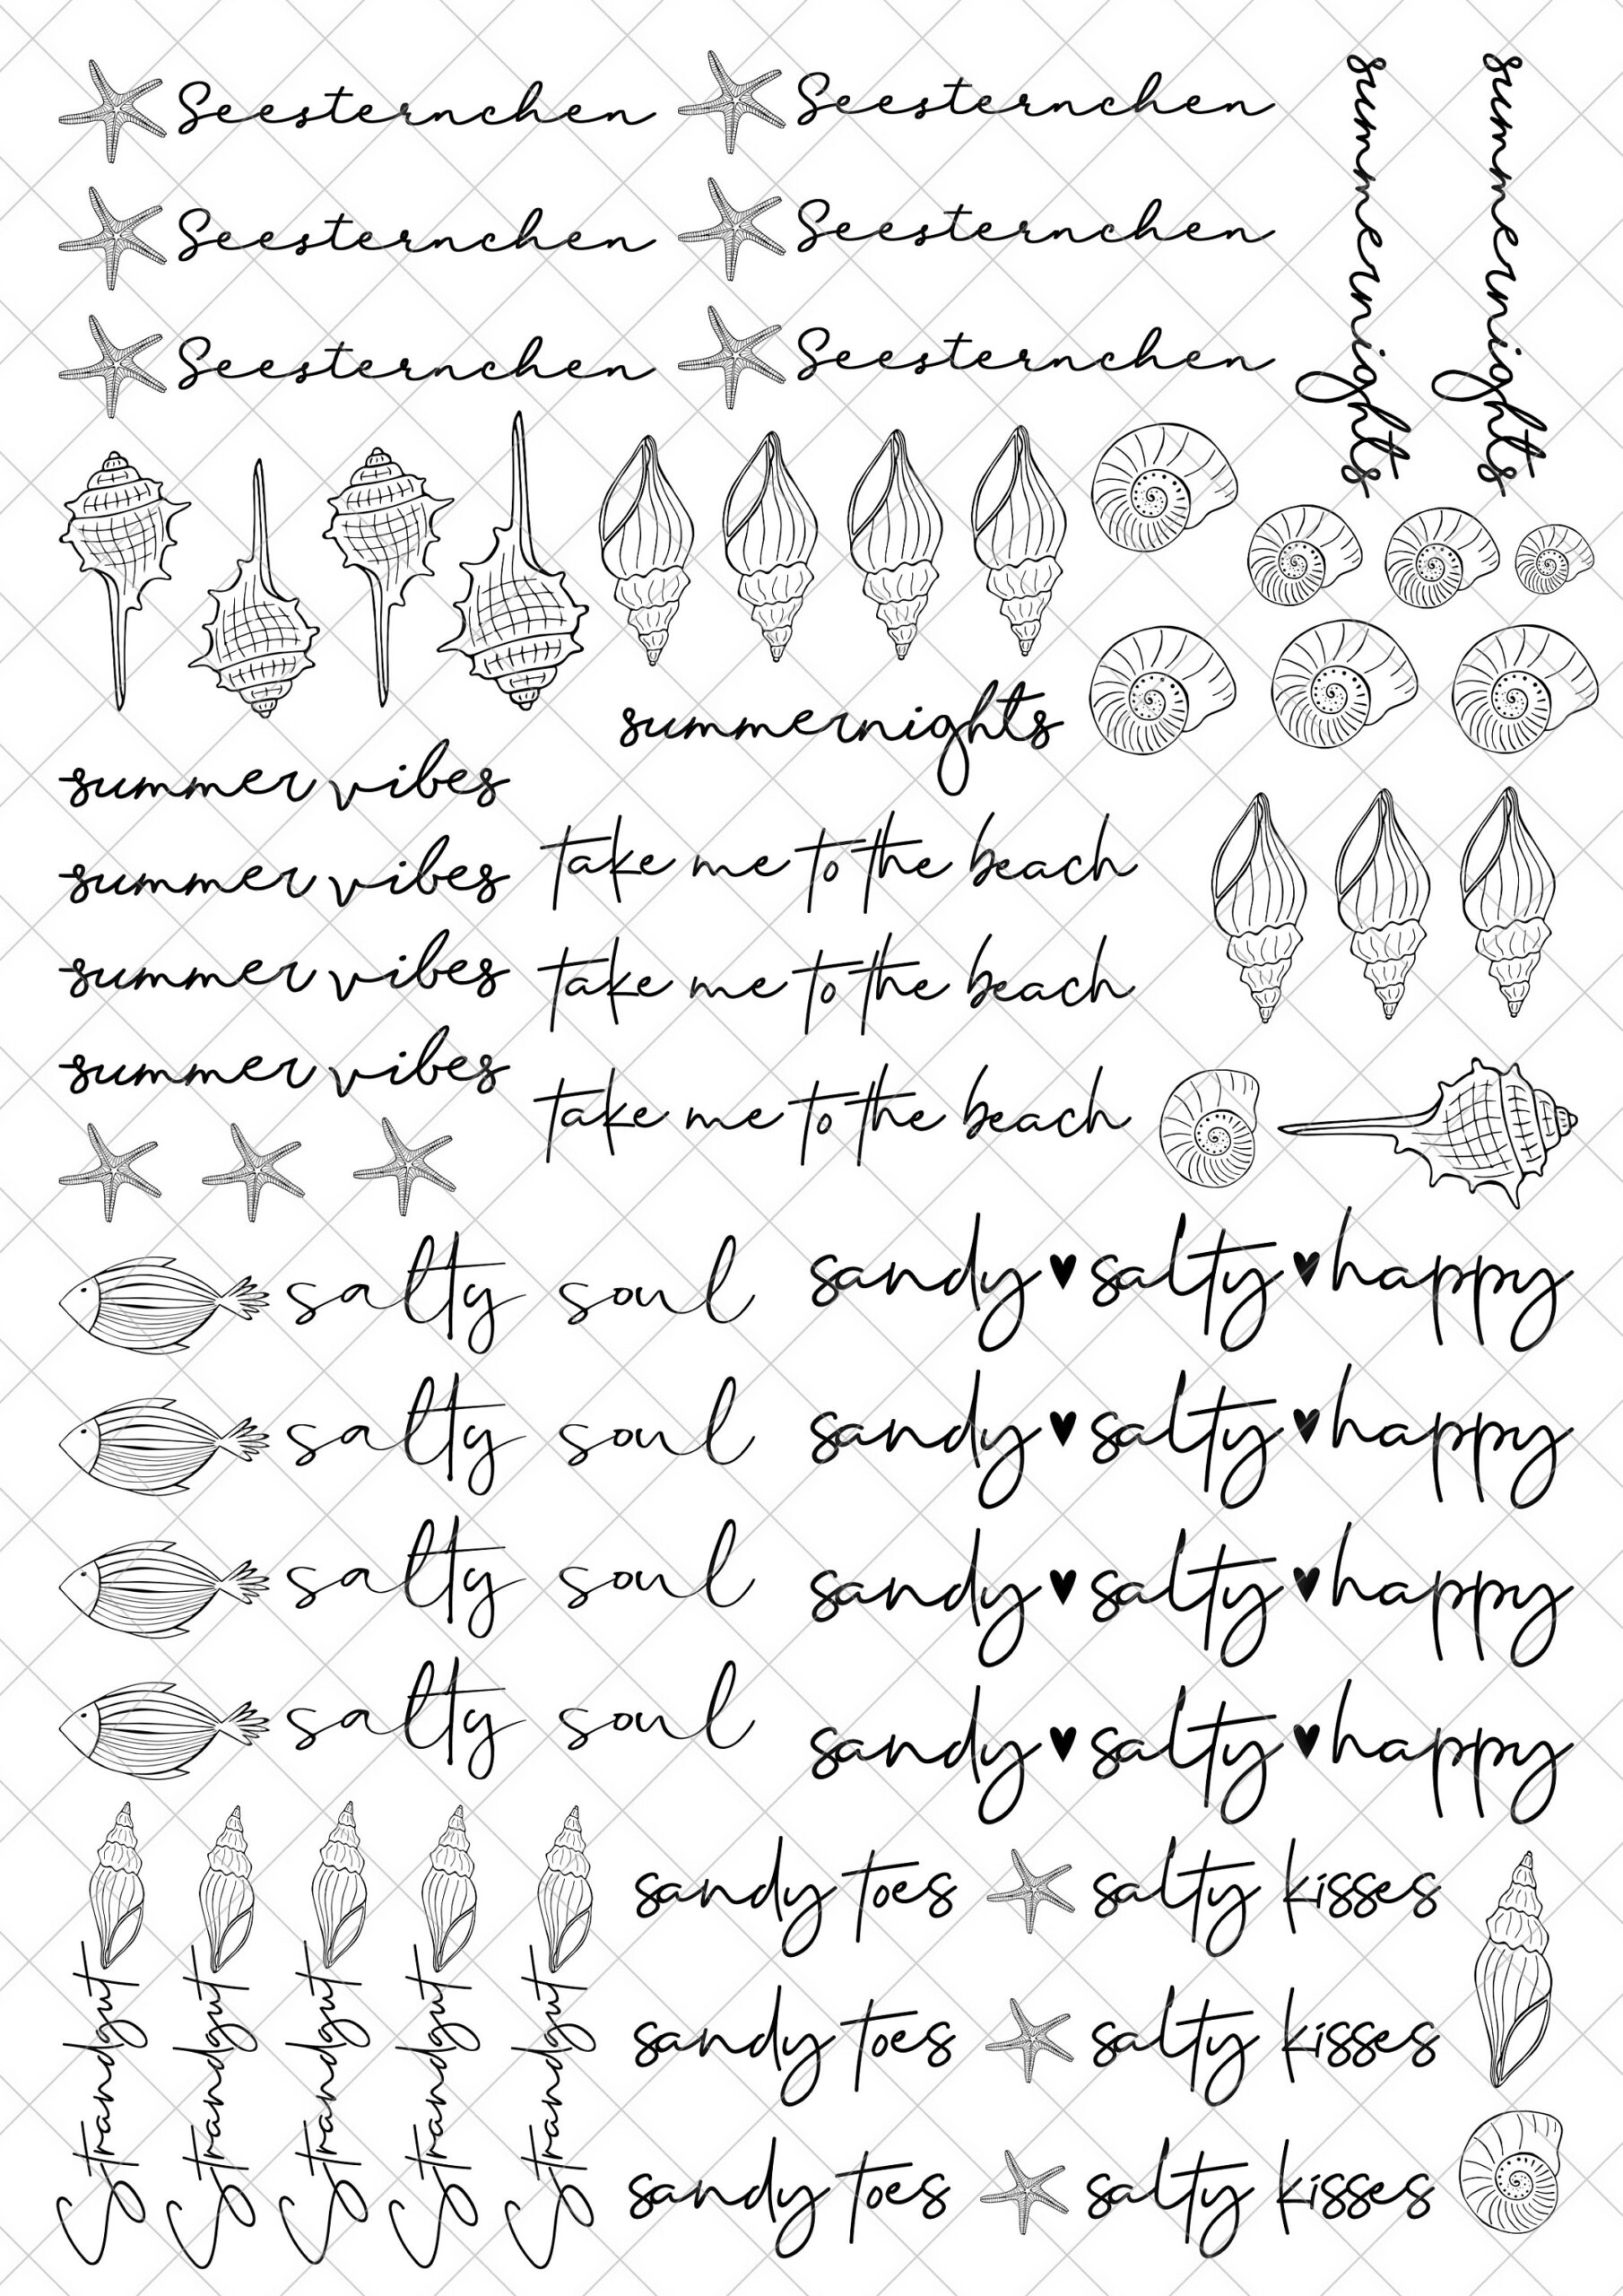 Seesternchen Seesternchen
Seesternchen Seesternchen
Seesternchen Seesternchen
summernights
summernights
summernights
summer vibes
summer vibes
summer vibes
summer vibes
take me to the beach
take me to the beach
take me to the beach
salty soul
salty soul
salty soul
salty soul
sandy♥salty♥happy
sandy♥salty♥happy
sandy♥salty♥happy
sandy♥salty♥happy
Strandgut
Strandgut
Strandgut
Strandgut
Strandgut
sandy toes salty kisses
sandy toes salty kisses
sandy toes salty kisses